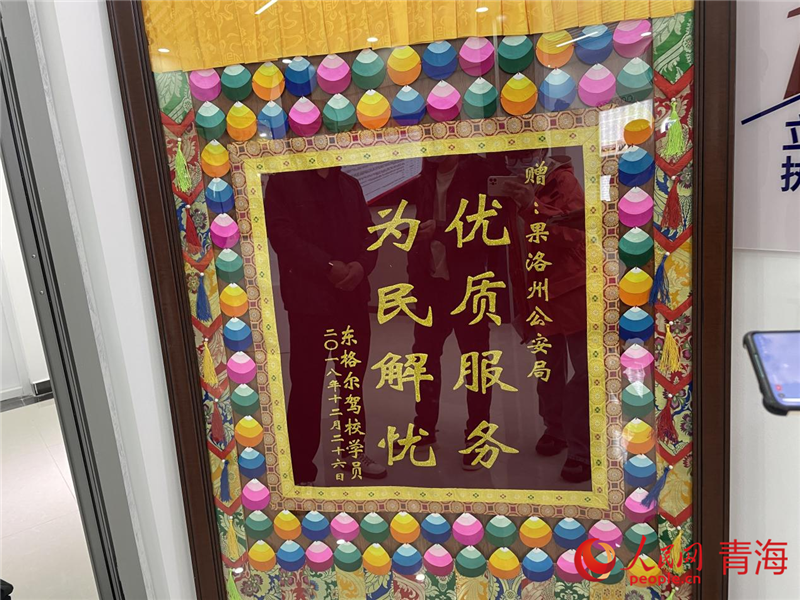 赠：果洛州公安局
优质服务
为民解忧
东格尔驾校学员
二〇一八年十二月二十六日
立
执
人民网 青海
people.cn